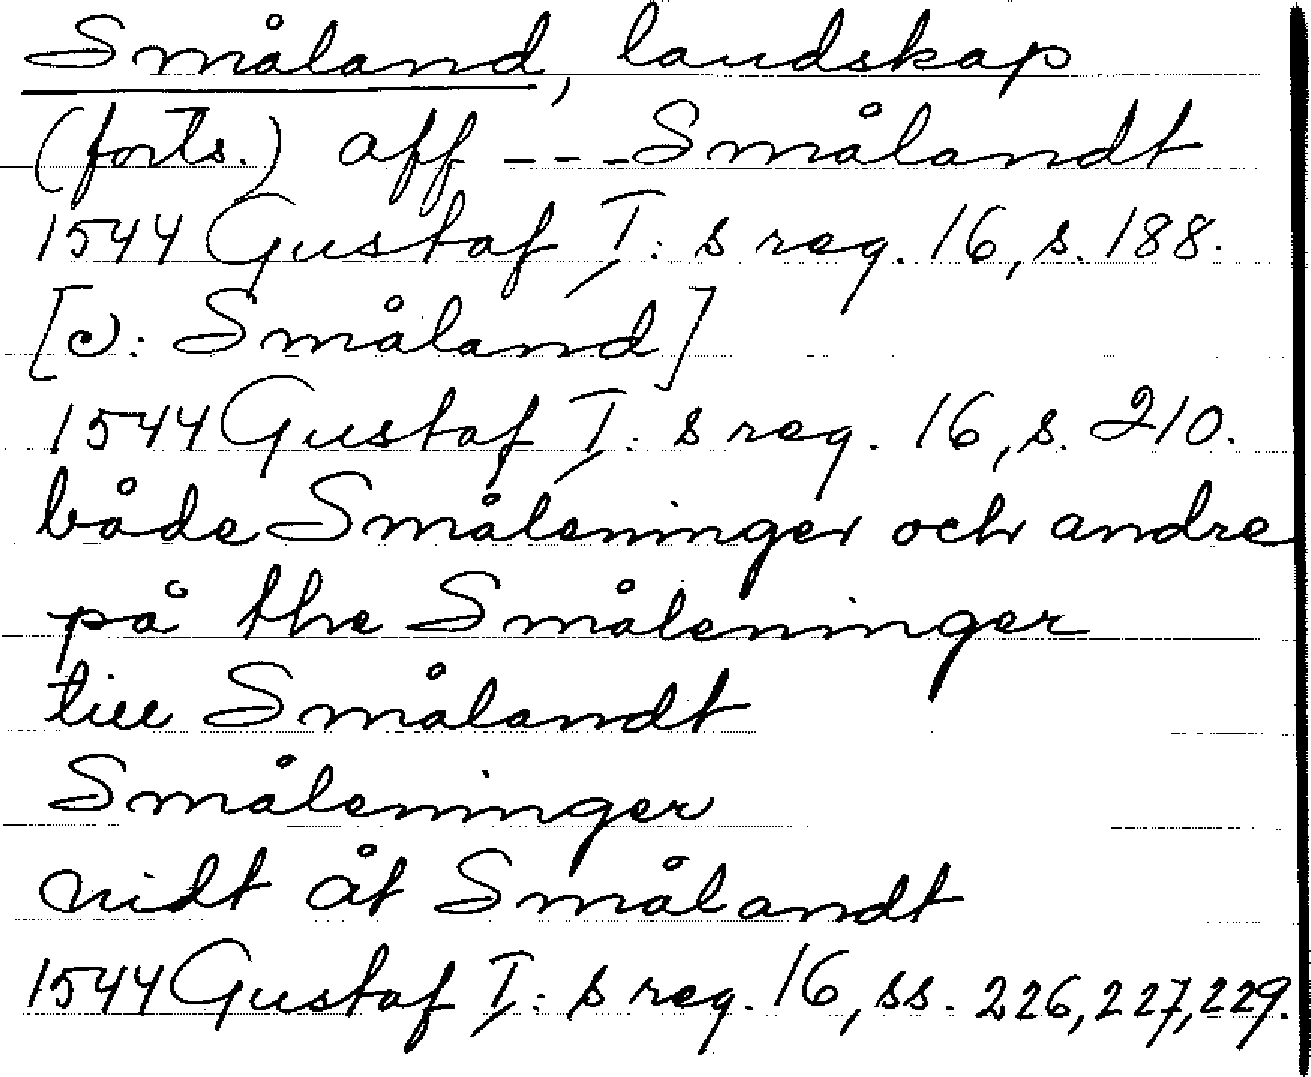 Småland, landskap
(forts.) aff ---Smålandt
1544 Gustaf I:s reg. 16, s. 188.
[o: Småland]
1544 Gustaf I:s reg. 16, s. 210.
både Småleninger och andre
på the Småleninger
till Smålandt
Småleninger
nidt åt Smålandt
1544 Gustaf I:s reg. 16, ss. 226, 227, 229.